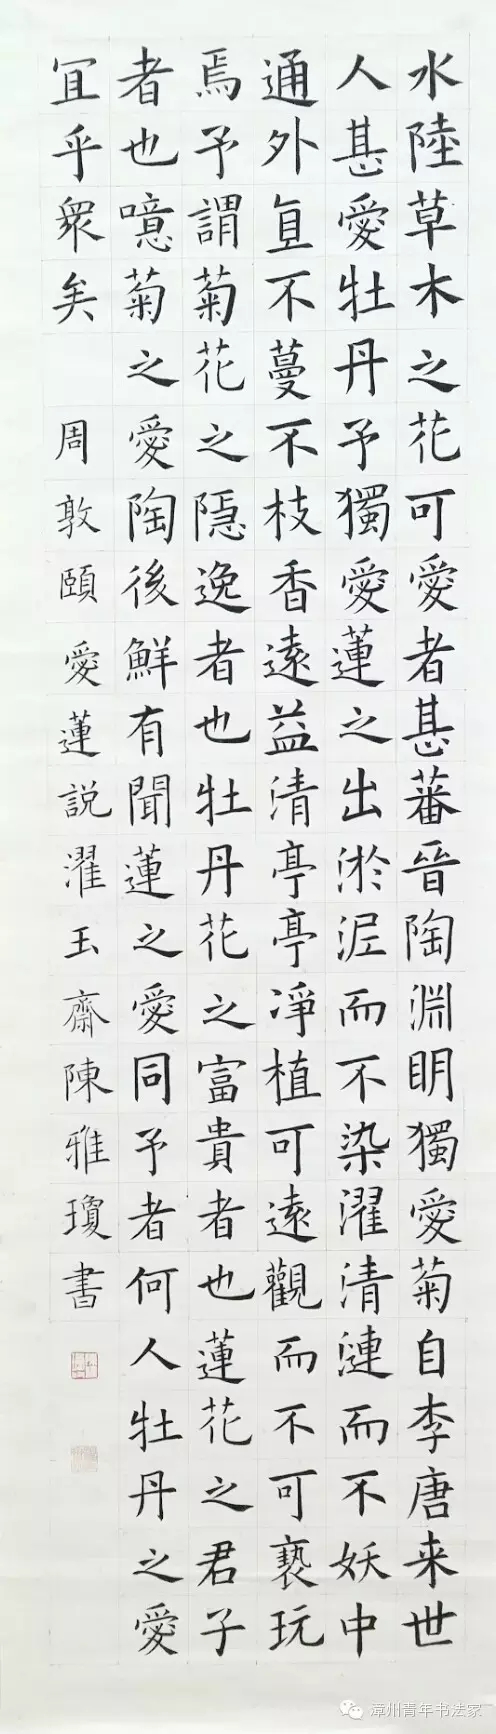 水陸草木之花可愛者甚蕃晉陶淵明獨愛菊自李唐来世
人甚愛牡丹予獨愛蓮之出淤泥而不染濯清漣而不妖中
通外直不蔓不枝香遠益清亭亭淨植可遠觀而不可褻玩
焉予謂菊花之隱逸者也牡丹花之富貴者也蓮花之君子
者也噫菊之愛陶後鮮有聞蓮之愛同予者何人牡丹之愛
宜乎衆矣 周敦頤愛蓮説濯玉齋陳雅瓊書
漳州青年书法家